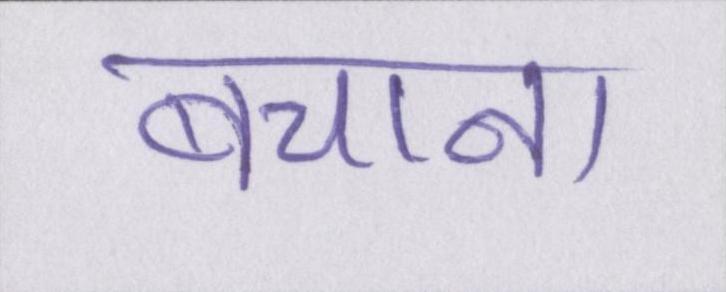 बचाना